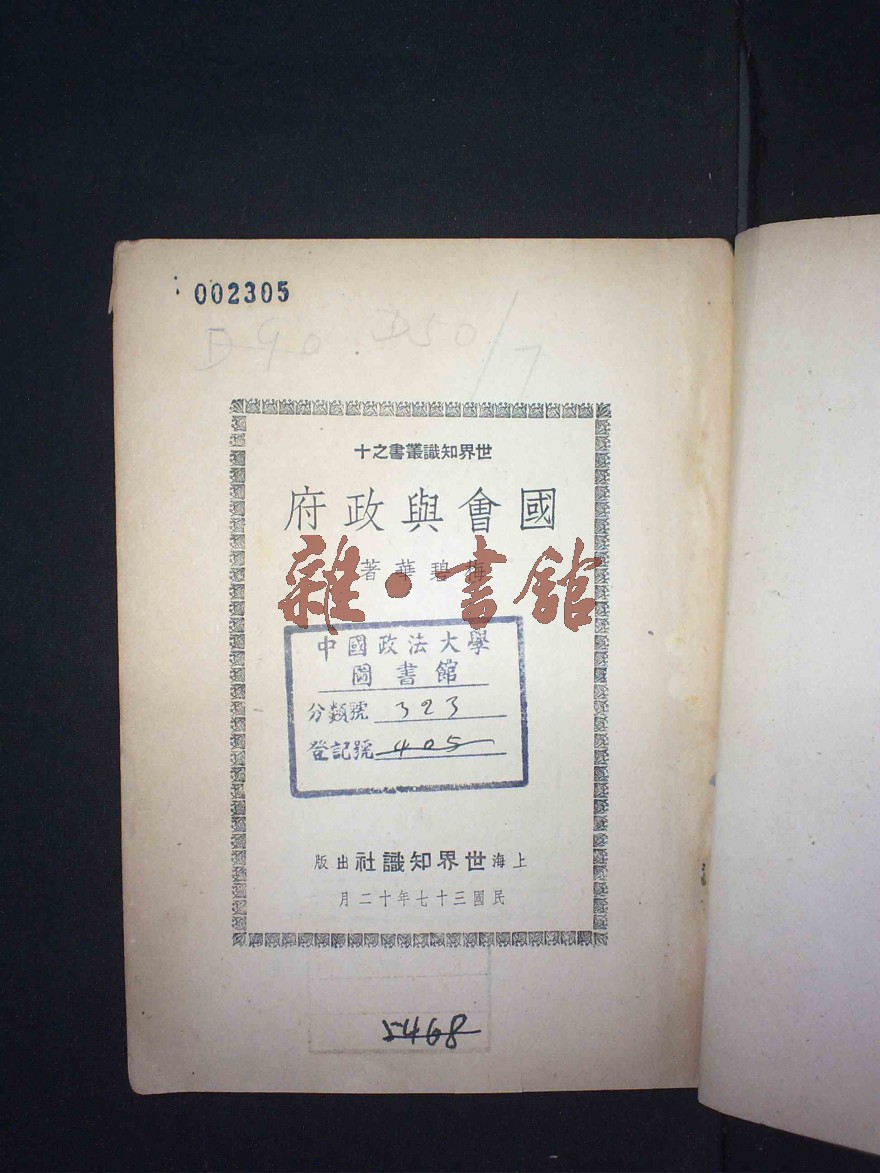 002305
D90 D50/7
世界知識叢書之十
國會與政府
梅碧華著
雜·書館
中國政法大學
圖書館
分類號 323
登記號 405
上海世界知識社出版
民國三十七年十二月
5468